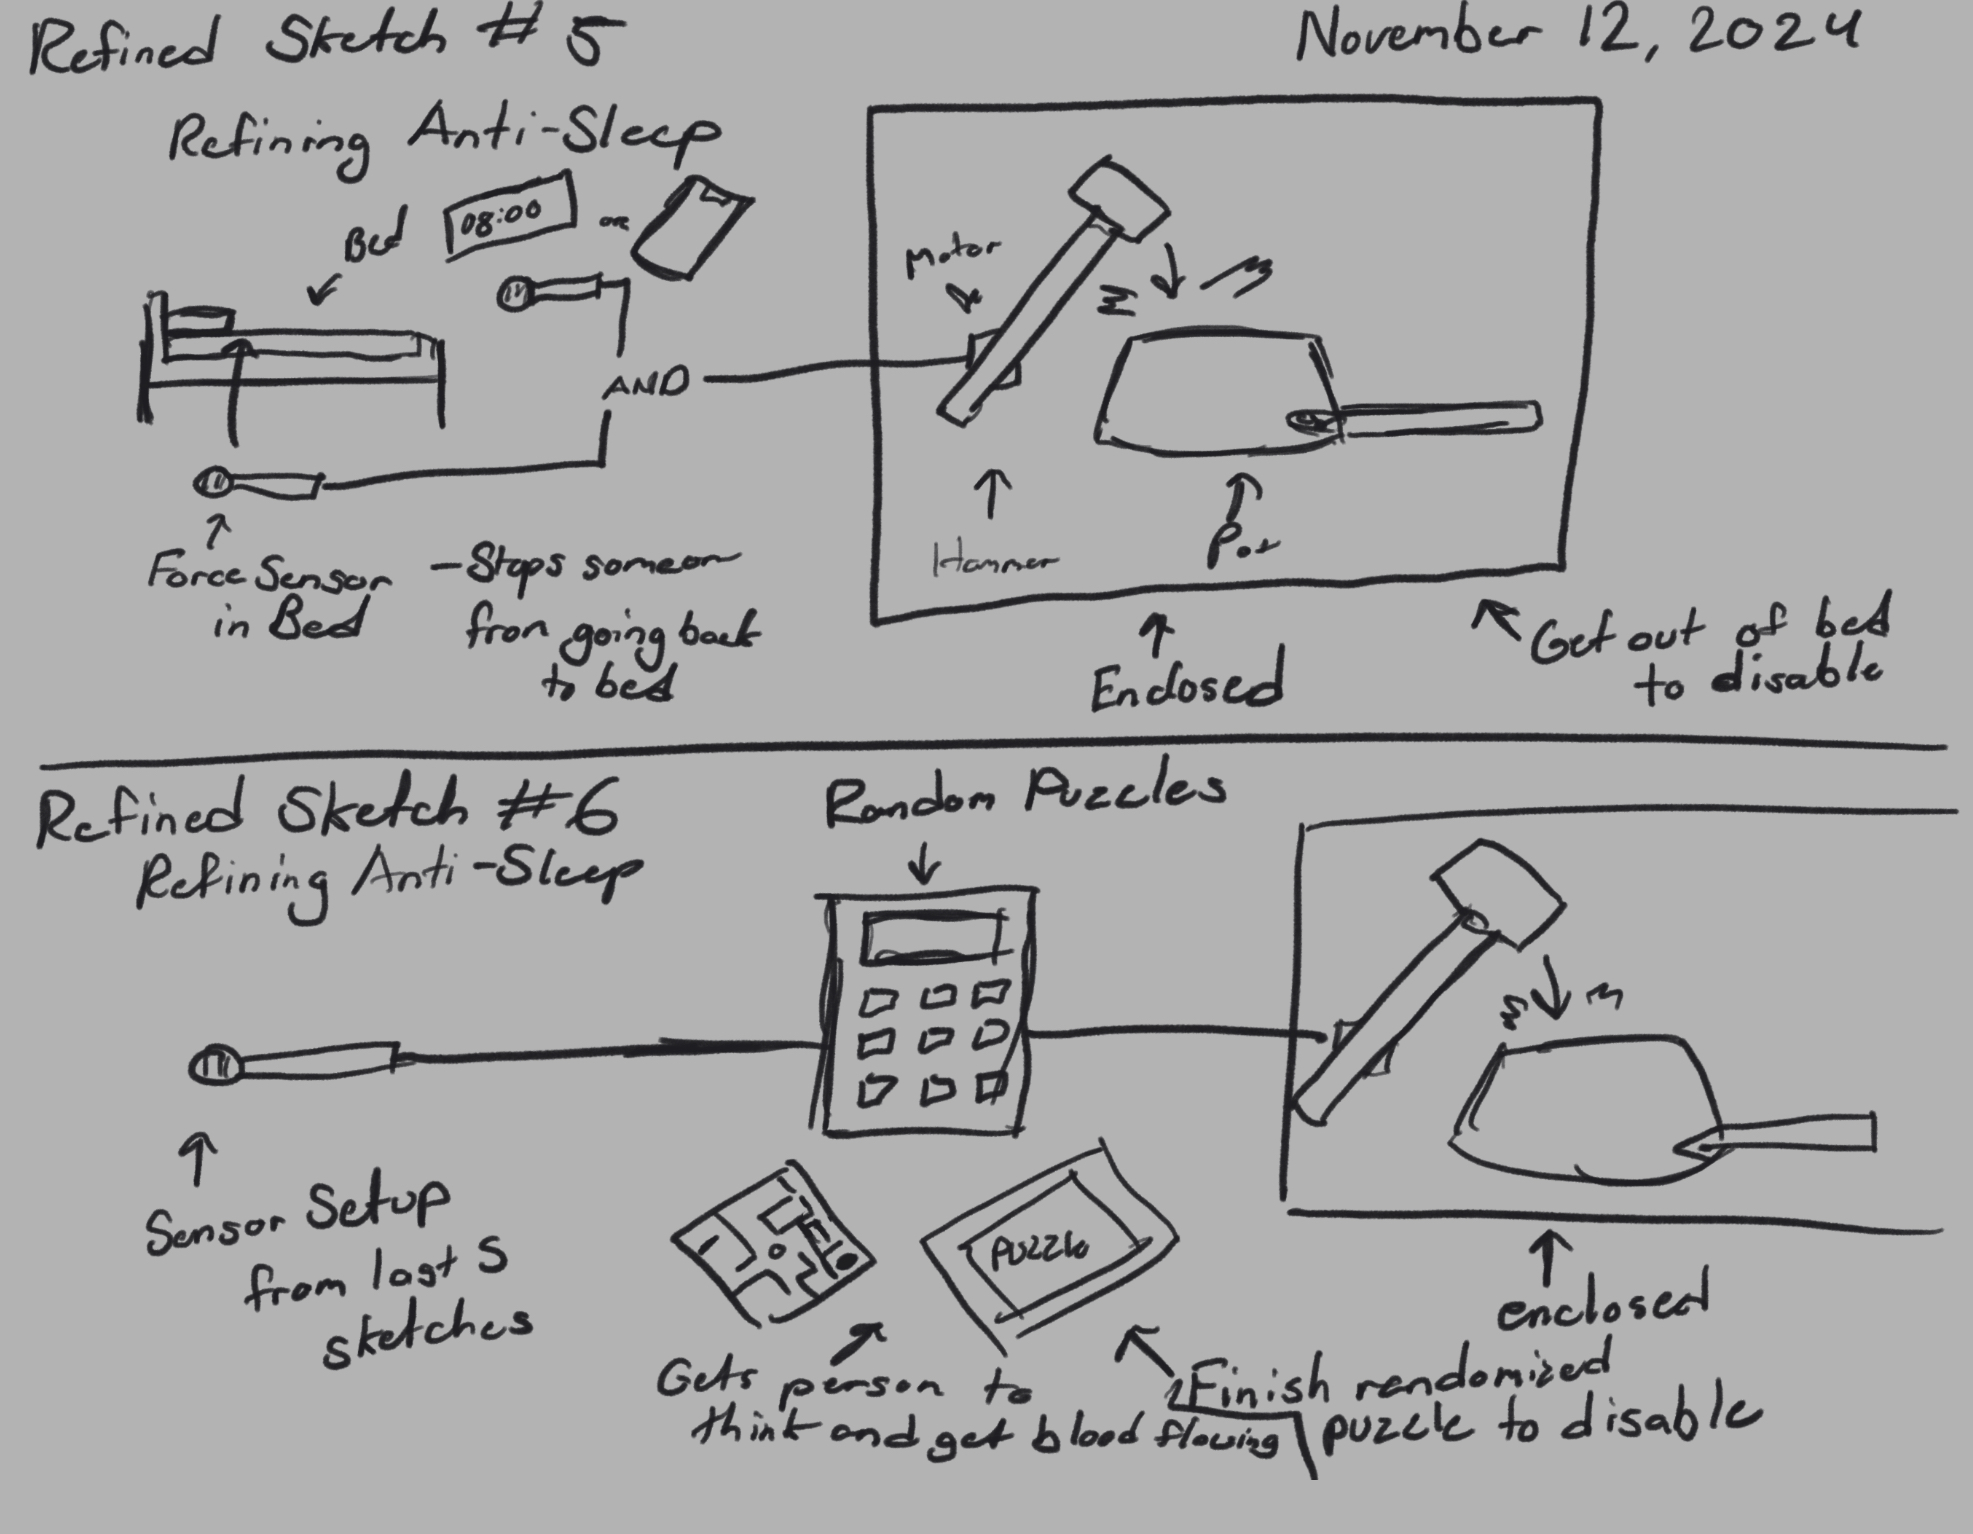 Refined Sketch # 5
November 12, 2024
Refining Anti-Sleep
Bed
08:00
or
Motor
AND
Hammer
Pot
Force Sensor
in Bed
- Stops someon
from going back
to bed
Enclosed
Get out of bed
to disable
Refined Sketch #6
Refining Anti-Sleep
Random Puzzles
Sensor Setup
from last 5
sketches
PUZZLE
enclosed
Gets person to
think and get blood flowing
Finish randomized
puzzle to disable